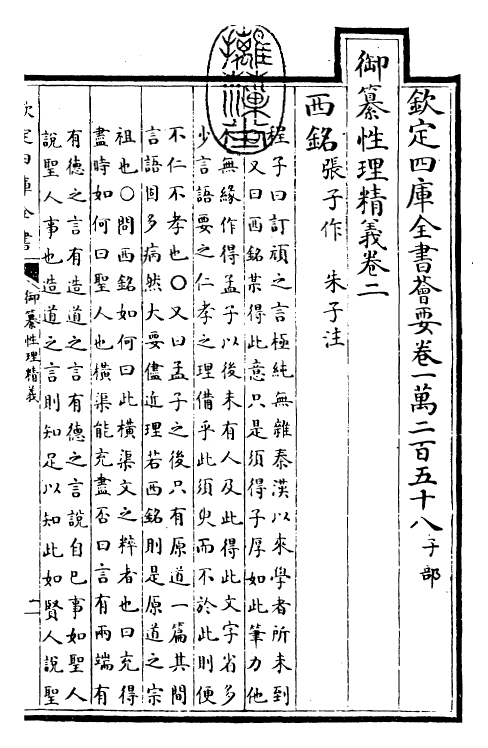 欽定四庫全書薈要卷一萬二百五十八子部
御纂性理精義卷二
西銘 張子作 朱子注
程子曰訂頑之言極純無雜秦漢以來學者所未到
又曰西銘某得此意只是須得子厚如此筆力他
無緣作得孟子以後未有人及此得此文字省多
少言語要之仁孝之理備乎此須臾而不於此則便
不仁不孝也○又曰孟子之後只有原道一篇其間
言語固多病然大要儘近理若西銘則是原道之宗
祖也○問西銘如何曰此橫渠文之粹者也曰充得
盡時如何曰聖人也橫渠能充盡否曰言有兩端有
有德之言有造道之言有德之言說自己事如聖人
說聖人事也造道之言則知足以知此如賢人說聖
欽定四庫全書
御纂性理精義